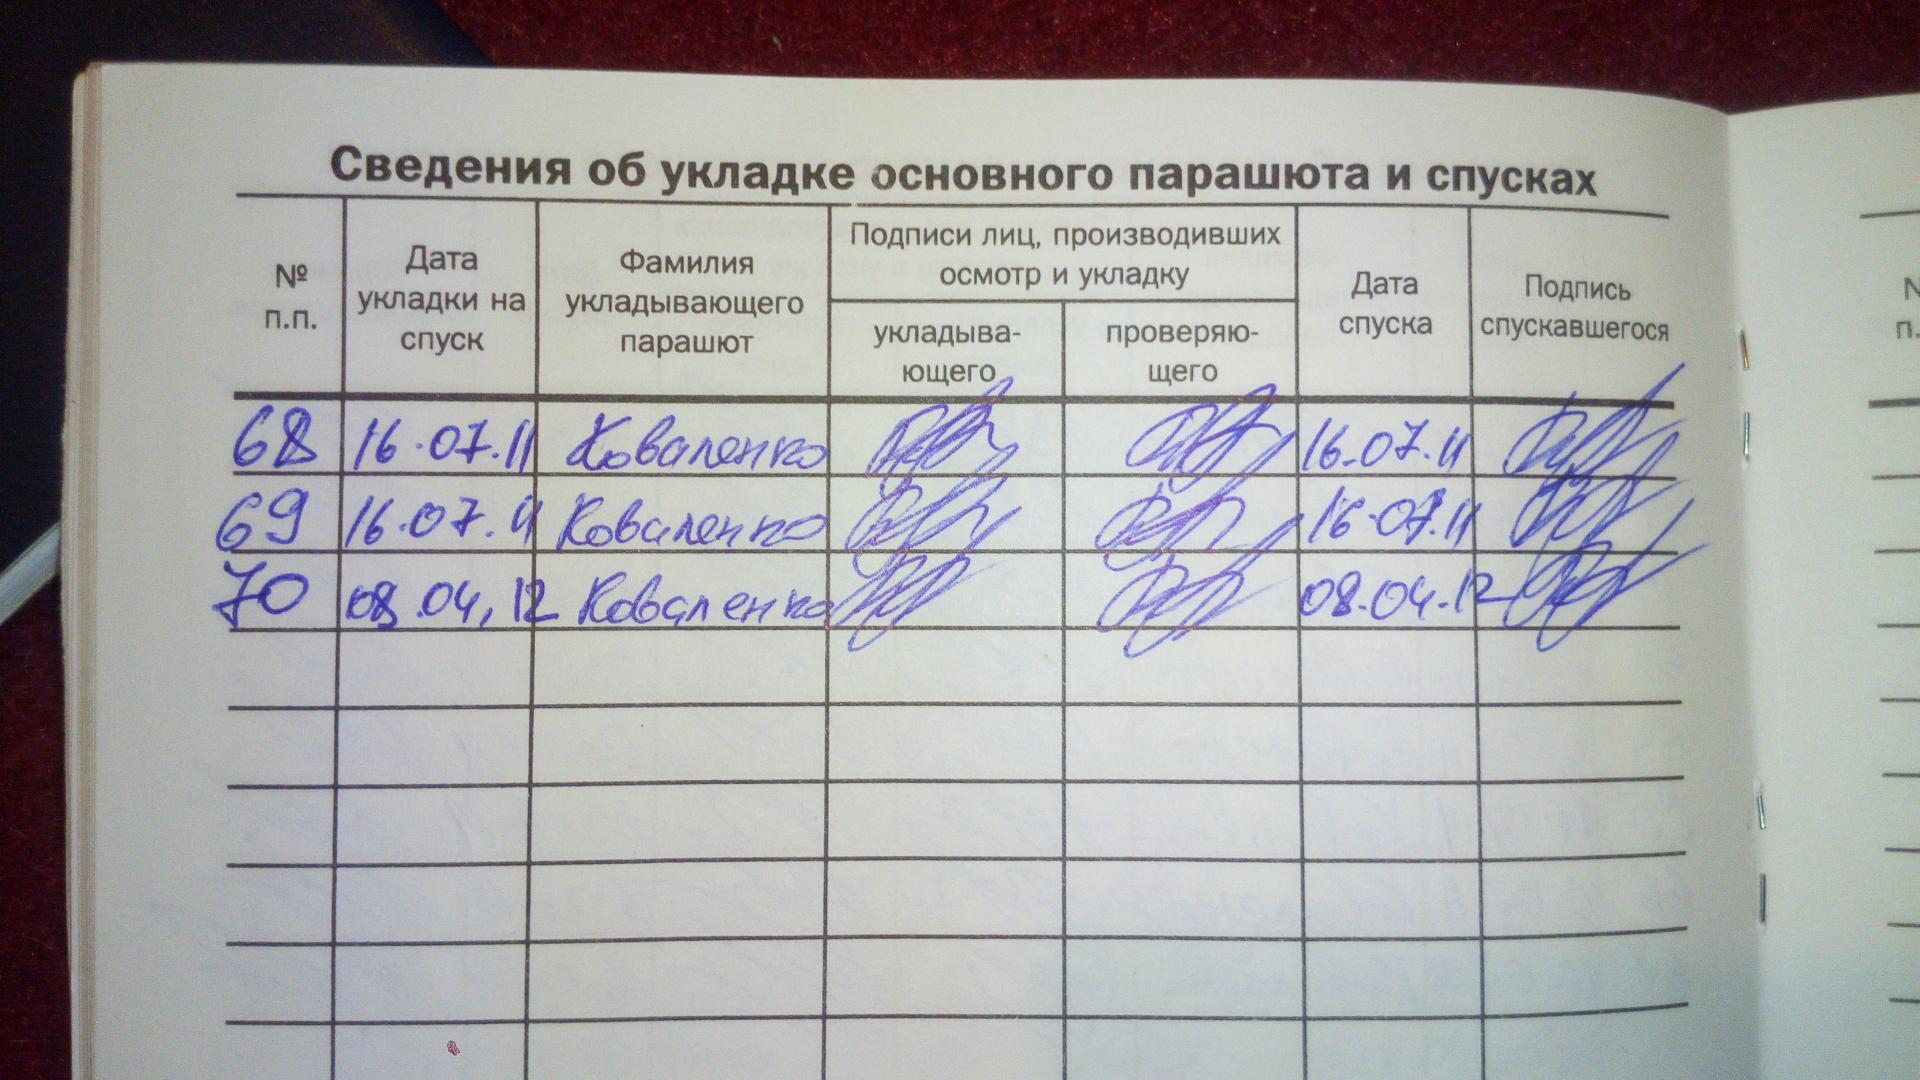 Сведения об укладке основного парашюта и спусках
№ п.п.
Дата укладки на спуск
Фамилия укладывающего парашют
Подписи лиц, производивших осмотр и укладку
укладыва-ющего
проверяю-щего
Дата спуска
Подпись спускавшегося
68 16.07.11 Коваленко 16.07.11
69 16.07.11 Коваленко 16.07.11
70 08.04.12 Коваленко 08.04.12